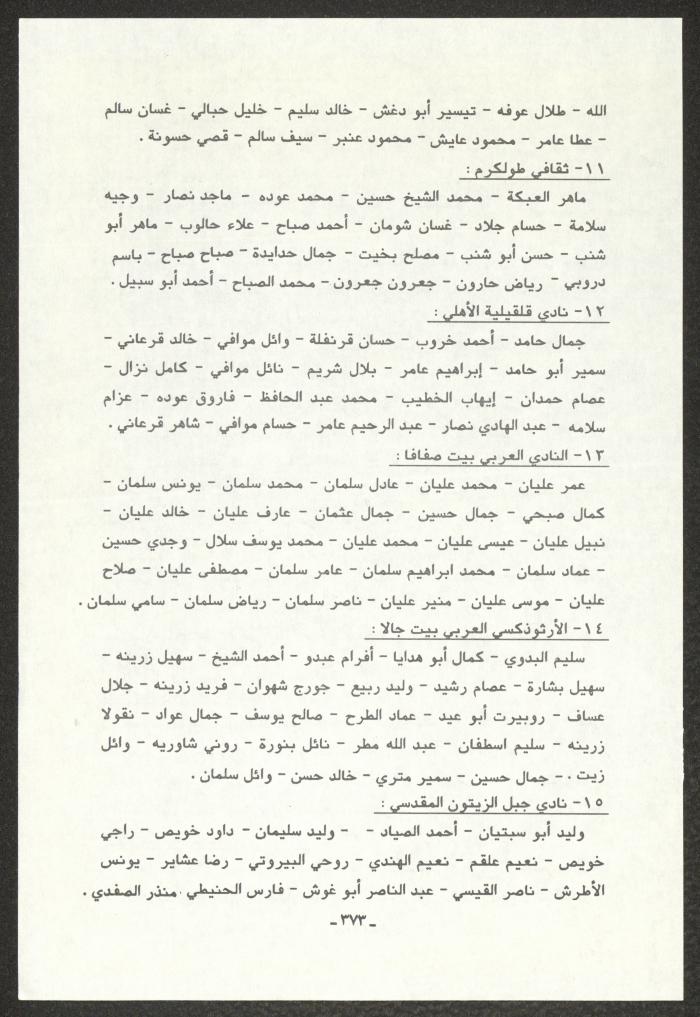 الله - طلال عوفه - تيسير أبو دغش - خالد سليم - خليل حبالي - غسان سالم
- عطا عامر - محمود عايش - محمود عنبر - سيف سالم - قصي حسونة .
١١- ثقافي طولكرم :
ماهر العبكة - محمد الشيخ حسين - محمد عوده - ماجد نصار - وجيه
سلامة - حسام جلاد - غسان شومان - أحمد صباح - علاء حالوب - ماهر أبو
شنب - حسن أبو شنب - مصلح بخيت - جمال حدايدة - صباح صباح - باسم
دروبي - رياض حارون - جعرون جعرون - محمد الصباح - أحمد أبو سبيل .
١٢- نادي قلقيلية الأهلي :
جمال حامد - أحمد خروب - حسان قرنفلة - وائل موافي - خالد قرعاني -
سمير أبو حامد - إبراهيم عامر - بلال شريم - نائل موافي - كامل نزال -
عصام حمدان - إيهاب الخطيب - محمد عبد الحافظ - فاروق عوده - عزام
سلامه - عبد الهادي نصار - عبد الرحيم عامر - حسام موافي - شاهر قرعاني .
١٣- النادي العربي بيت صفافا :
عمر عليان - محمد عليان - عادل سلمان - محمد سلمان - يونس سلمان -
كمال صبحي - جمال حسين - جمال عثمان - عارف عليان - خالد عليان -
نبيل عليان - عيسى عليان - محمد عليان - محمد يوسف سلال - وجدي حسين
- عماد سلمان - محمد ابراهيم سلمان - عامر سلمان - مصطفى عليان - صلاح
عليان - موسى عليان - منير عليان - ناصر سلمان - رياض سلمان - سامي سلمان .
١٤- الأرثوذكسي العربي بيت جالا :
سليم البدوي - كمال أبو هدايا - أفرام عبدو - أحمد الشيخ - سهيل زرينه -
سهيل بشارة - عصام رشيد - وليد ربيع - جورج شهوان - فريد زرينه - جلال
عساف - روبيرت أبو عيد - عماد الطرح - صالح يوسف - جمال عواد - نقولا
زرينه - سليم اسطفان - عبد الله مطر - نائل بنورة - روني شاوريه - وائل
زيت . - جمال حسين - سمير متري - خالد حسن - وائل سلمان .
١٥- نادي جبل الزيتون المقدسي :
وليد أبو سبتيان - أحمد الصياد - - وليد سليمان - داود خويص - راجي
خويص - نعيم علقم - نعيم الهندي - روحي البيروتي - رضا عشاير - يونس
الأطرش - ناصر القيسي - عبد الناصر أبو غوش - فارس الحنيطي . منذر الصفدي .
- ٣٧٣ -